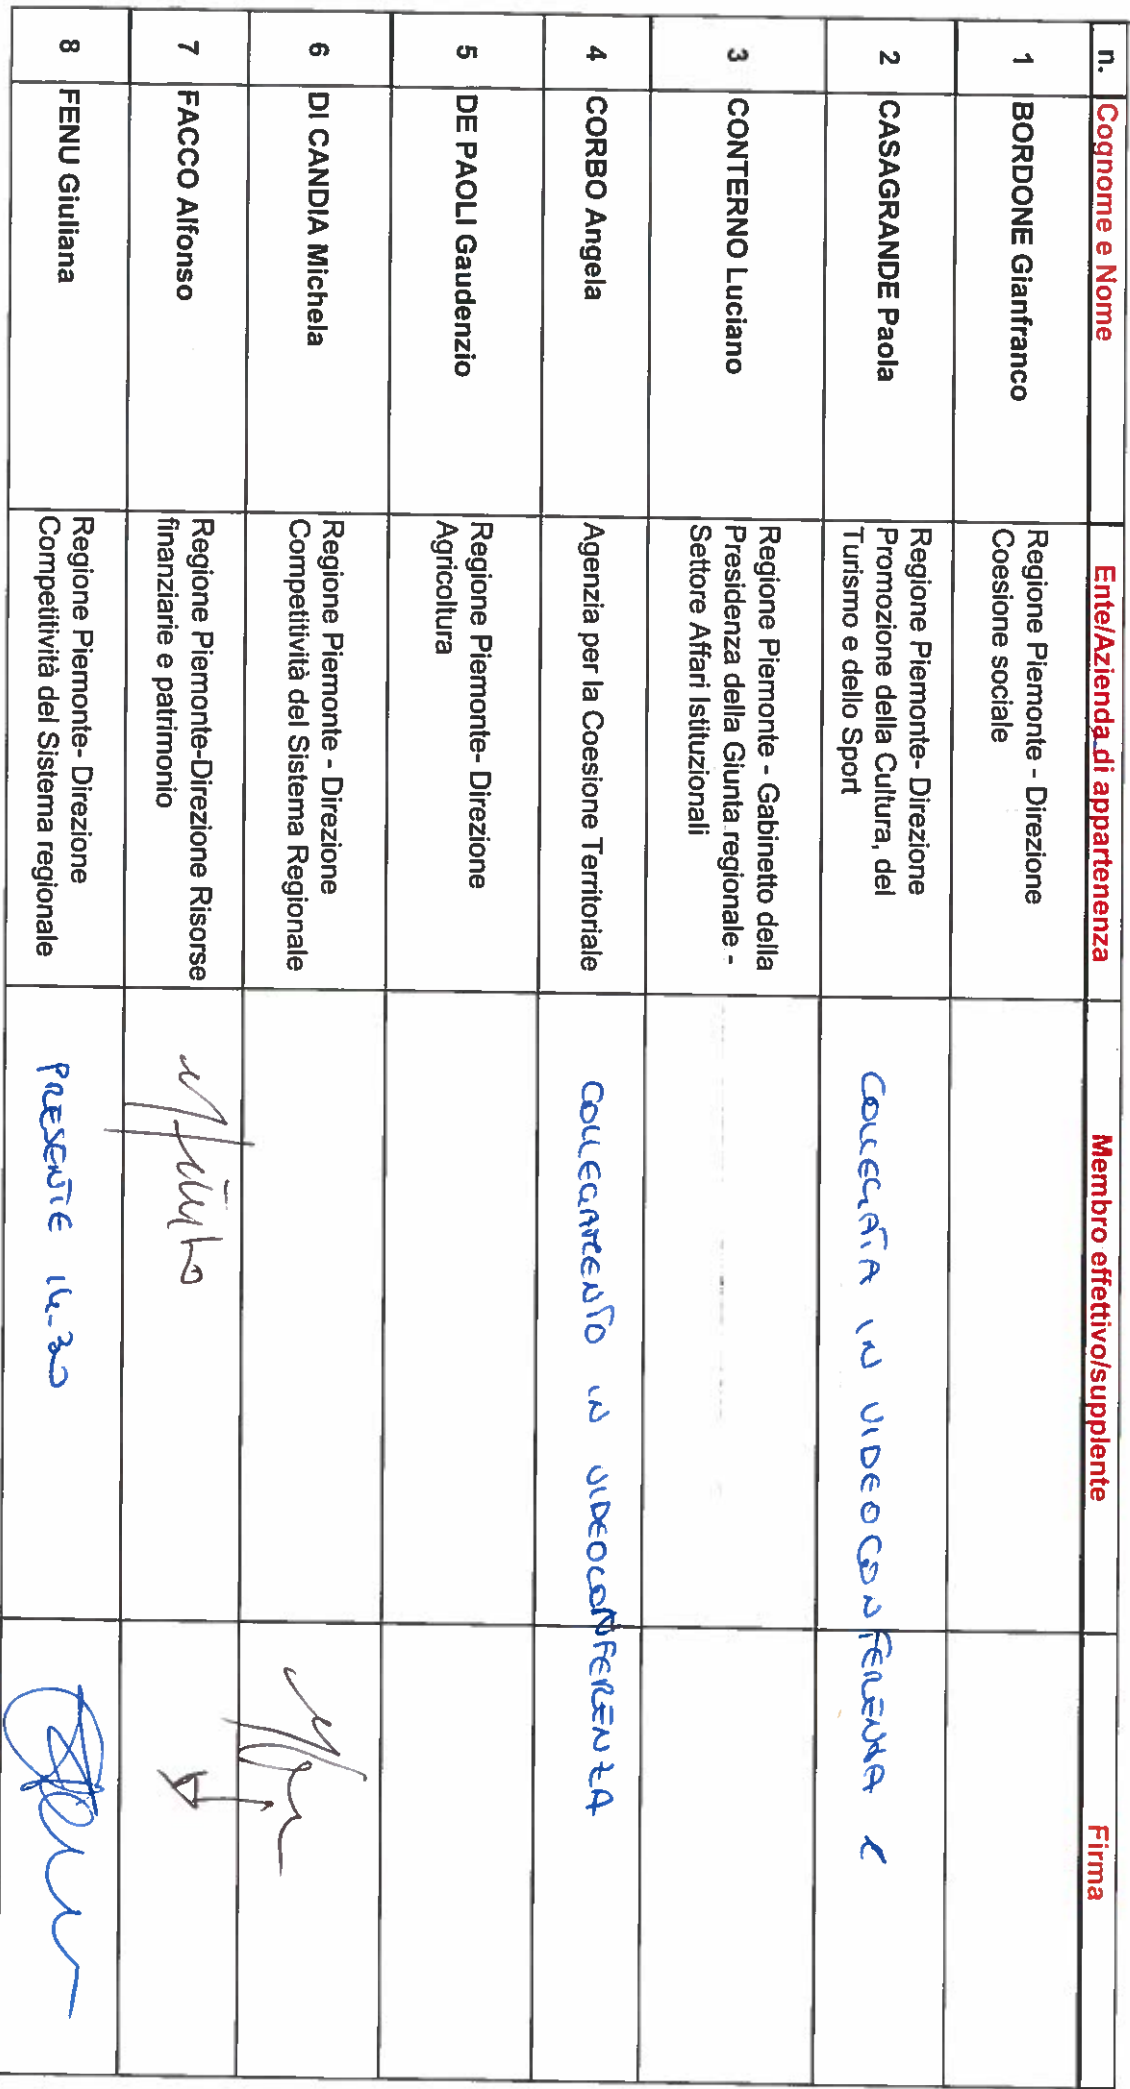 n. Cognome e Nome Ente/Azienda di appartenenza Membro effettivo/supplente Firma
1 BORDONE Gianfranco Regione Piemonte - Direzione
Coesione sociale
2 CASAGRANDE Paola Regione Piemonte- Direzione
Promozione della Cultura, del
Turismo e dello Sport
COLLEGATA IN VIDEOCONFERENZA
3 CONTERNO Luciano Regione Piemonte - Gabinetto della
Presidenza della Giunta regionale -
Settore Affari Istituzionali
4 CORBO Angela Agenzia per la Coesione Territoriale COLLEGAMENTO IN VIDEOCONFERENZA
5 DE PAOLI Gaudenzio Regione Piemonte- Direzione
Agricoltura
6 DI CANDIA Michela Regione Piemonte - Direzione
Competitività del Sistema Regionale
7 FACCO Alfonso Regione Piemonte-Direzione Risorse
finanziarie e patrimonio
8 FENU Giuliana Regione Piemonte- Direzione
Competitività del Sistema regionale
PRESENTE 14.30